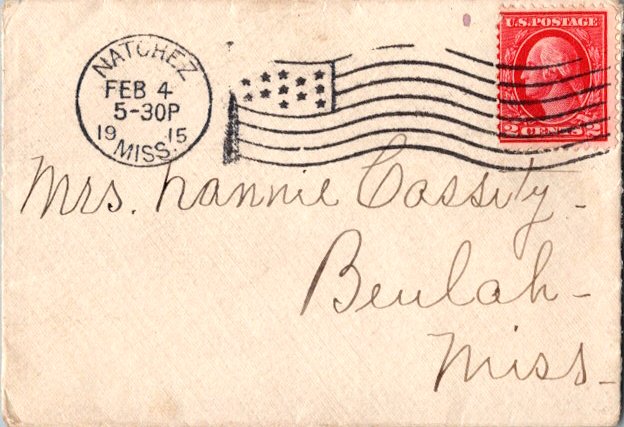 NATCHEZ
FEB 4
5-30P
19 15
MISS.
U.S. POSTAGE
2 CENTS 2
Mrs. Nannie Cassity-
Beulah-
Miss-